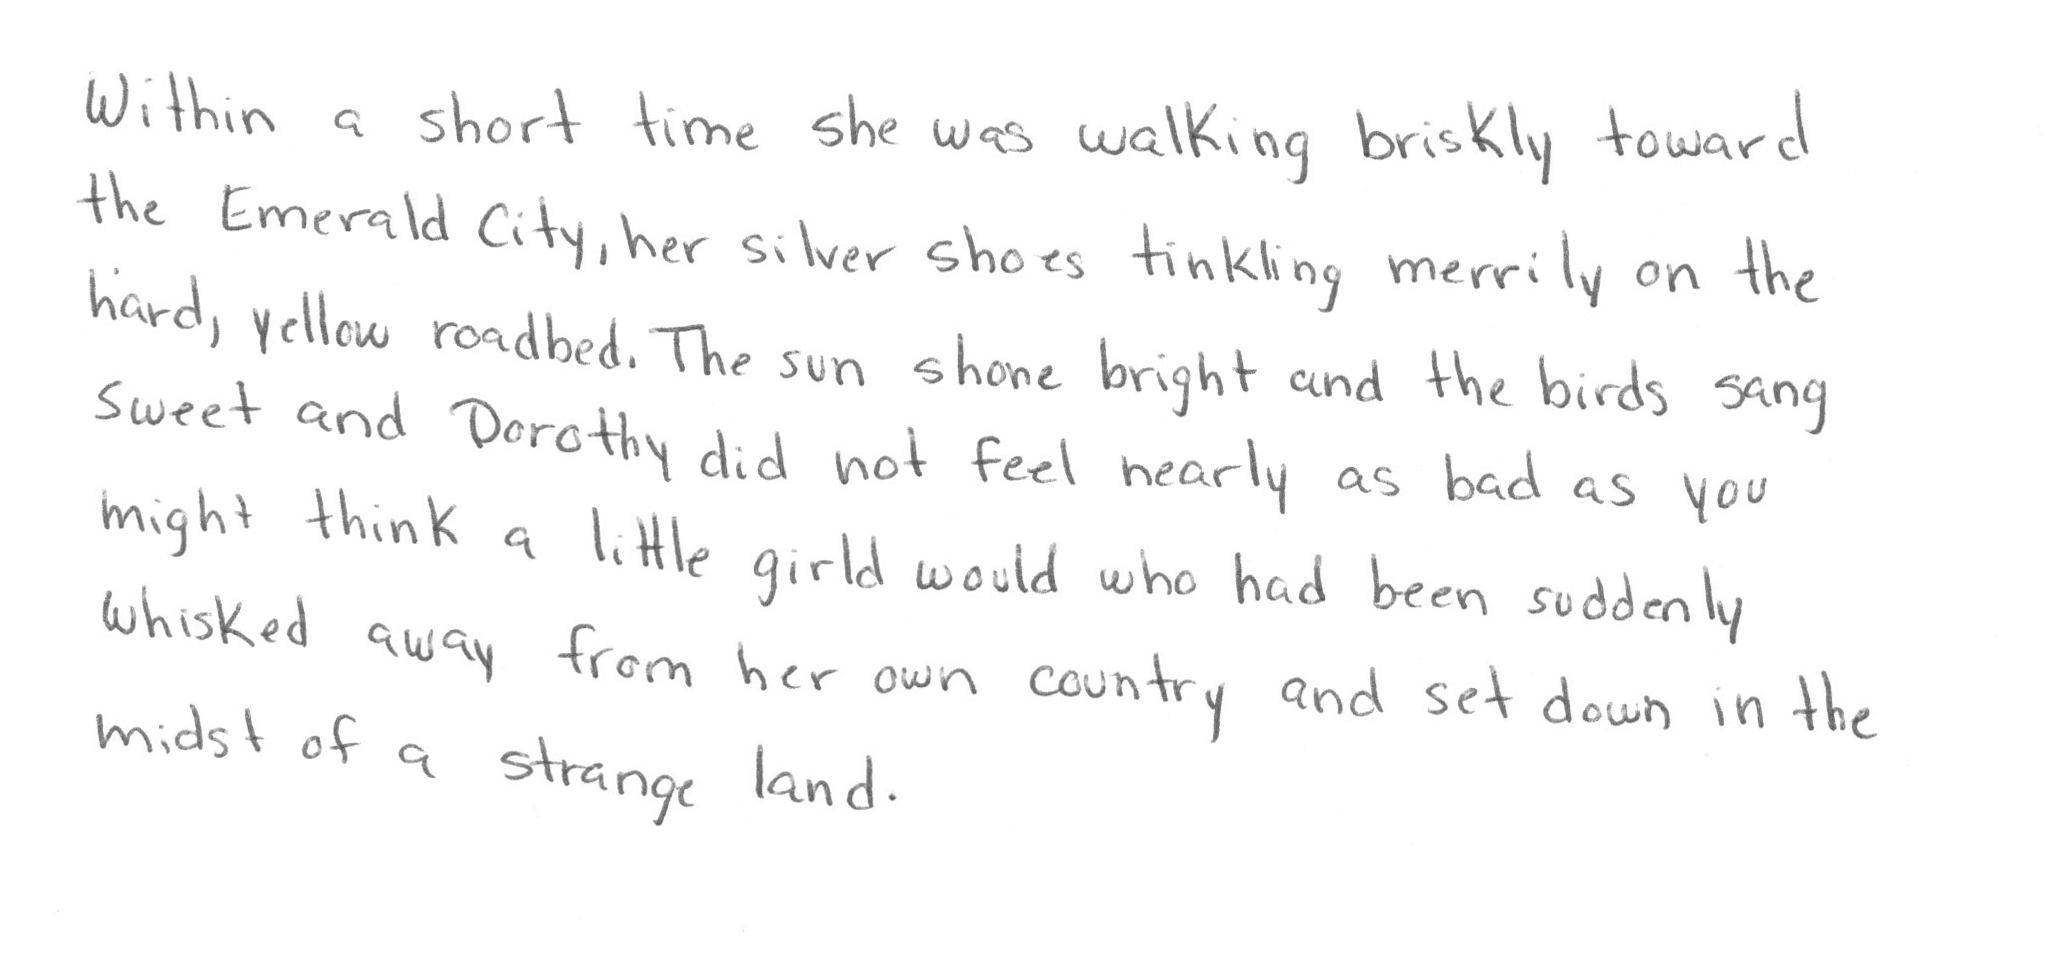 Within a short time she was walking briskly toward
the Emerald City, her silver shoes tinkling merrily on the
hard, yellow roadbed. The sun shone bright and the birds sang
sweet and Dorothy did not feel nearly as bad as you
might think a little girld would who had been suddenly
whisked away from her own country and set down in the
midst of a strange land.